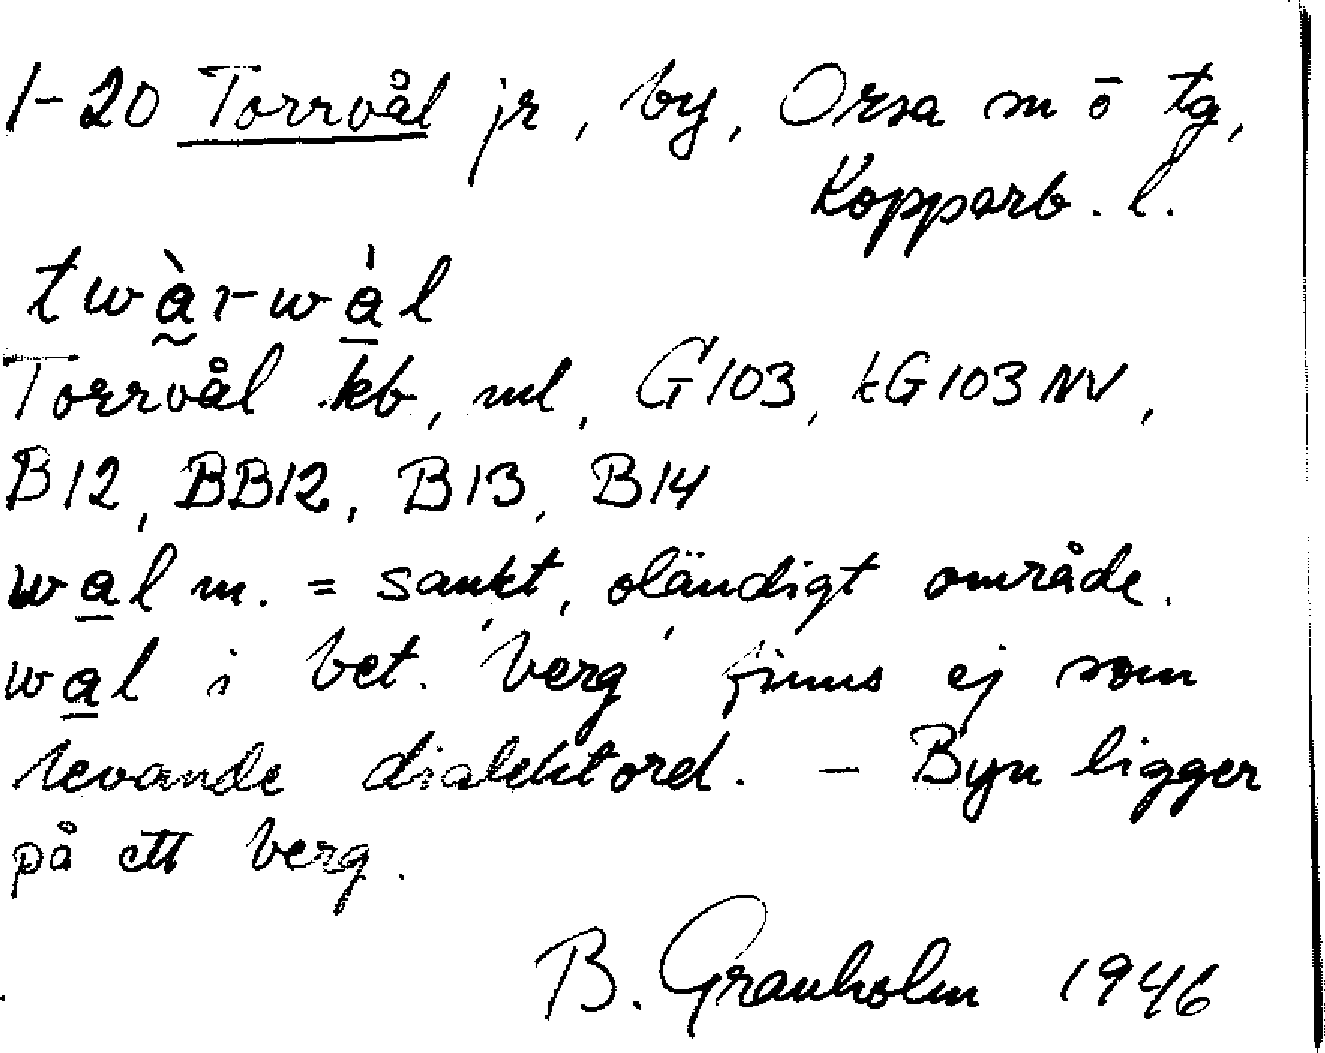 1-20 Torrvål jr, by, Orsa sn ō tg,
Kopparb. l.
twà̰r-wà̱l
Torrvål kb, ml, G103, tG103NV,
B12, BB12, B13, B14
wa̱l m. = sankt, oländigt område.
wa̱l i bet. 'berg' finns ej som
levande dialektord. – Byn ligger
på ett berg.
B. Granholm 1946